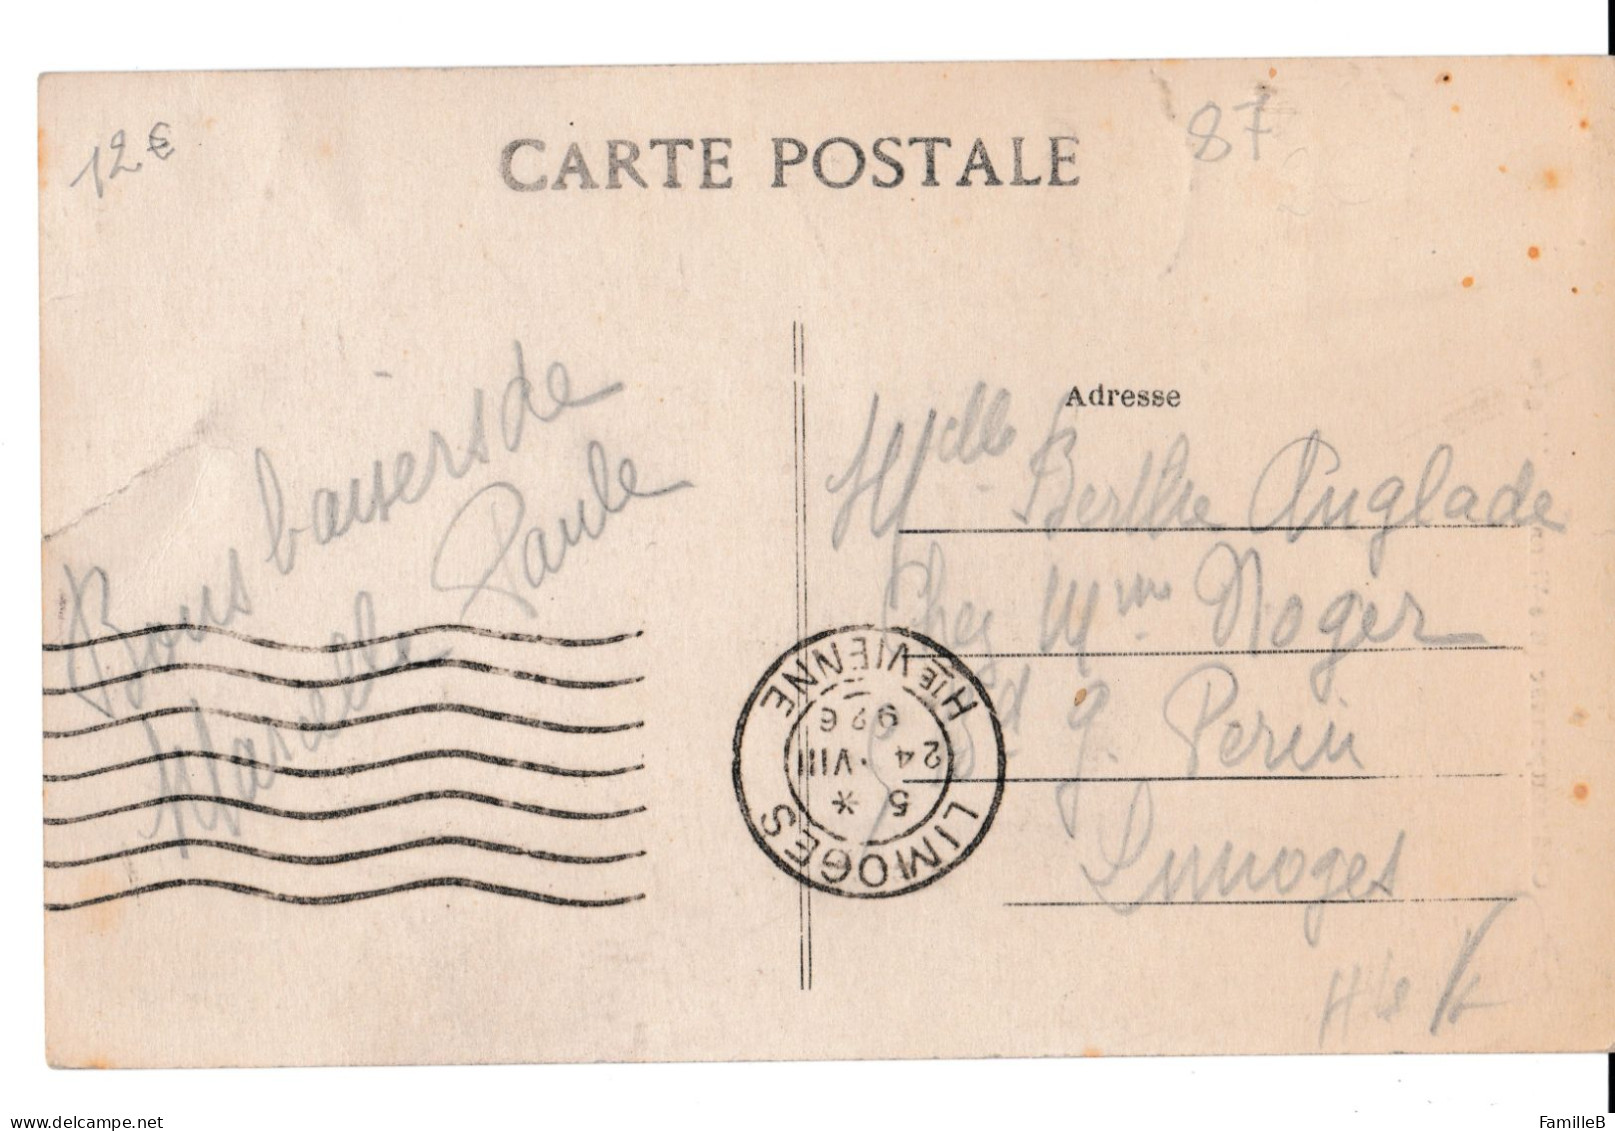 12€
CARTE POSTALE
87
Bons baisers de
Marcelle Paule
Adresse
Mlle Berthe Anglade
Chez Mme Roger
Bd G. Perin
Limoges
Hte
LIMOGES
HTE VIENNE
5 *
24 ·VIII
926
www.delcampe.net
FamilleB